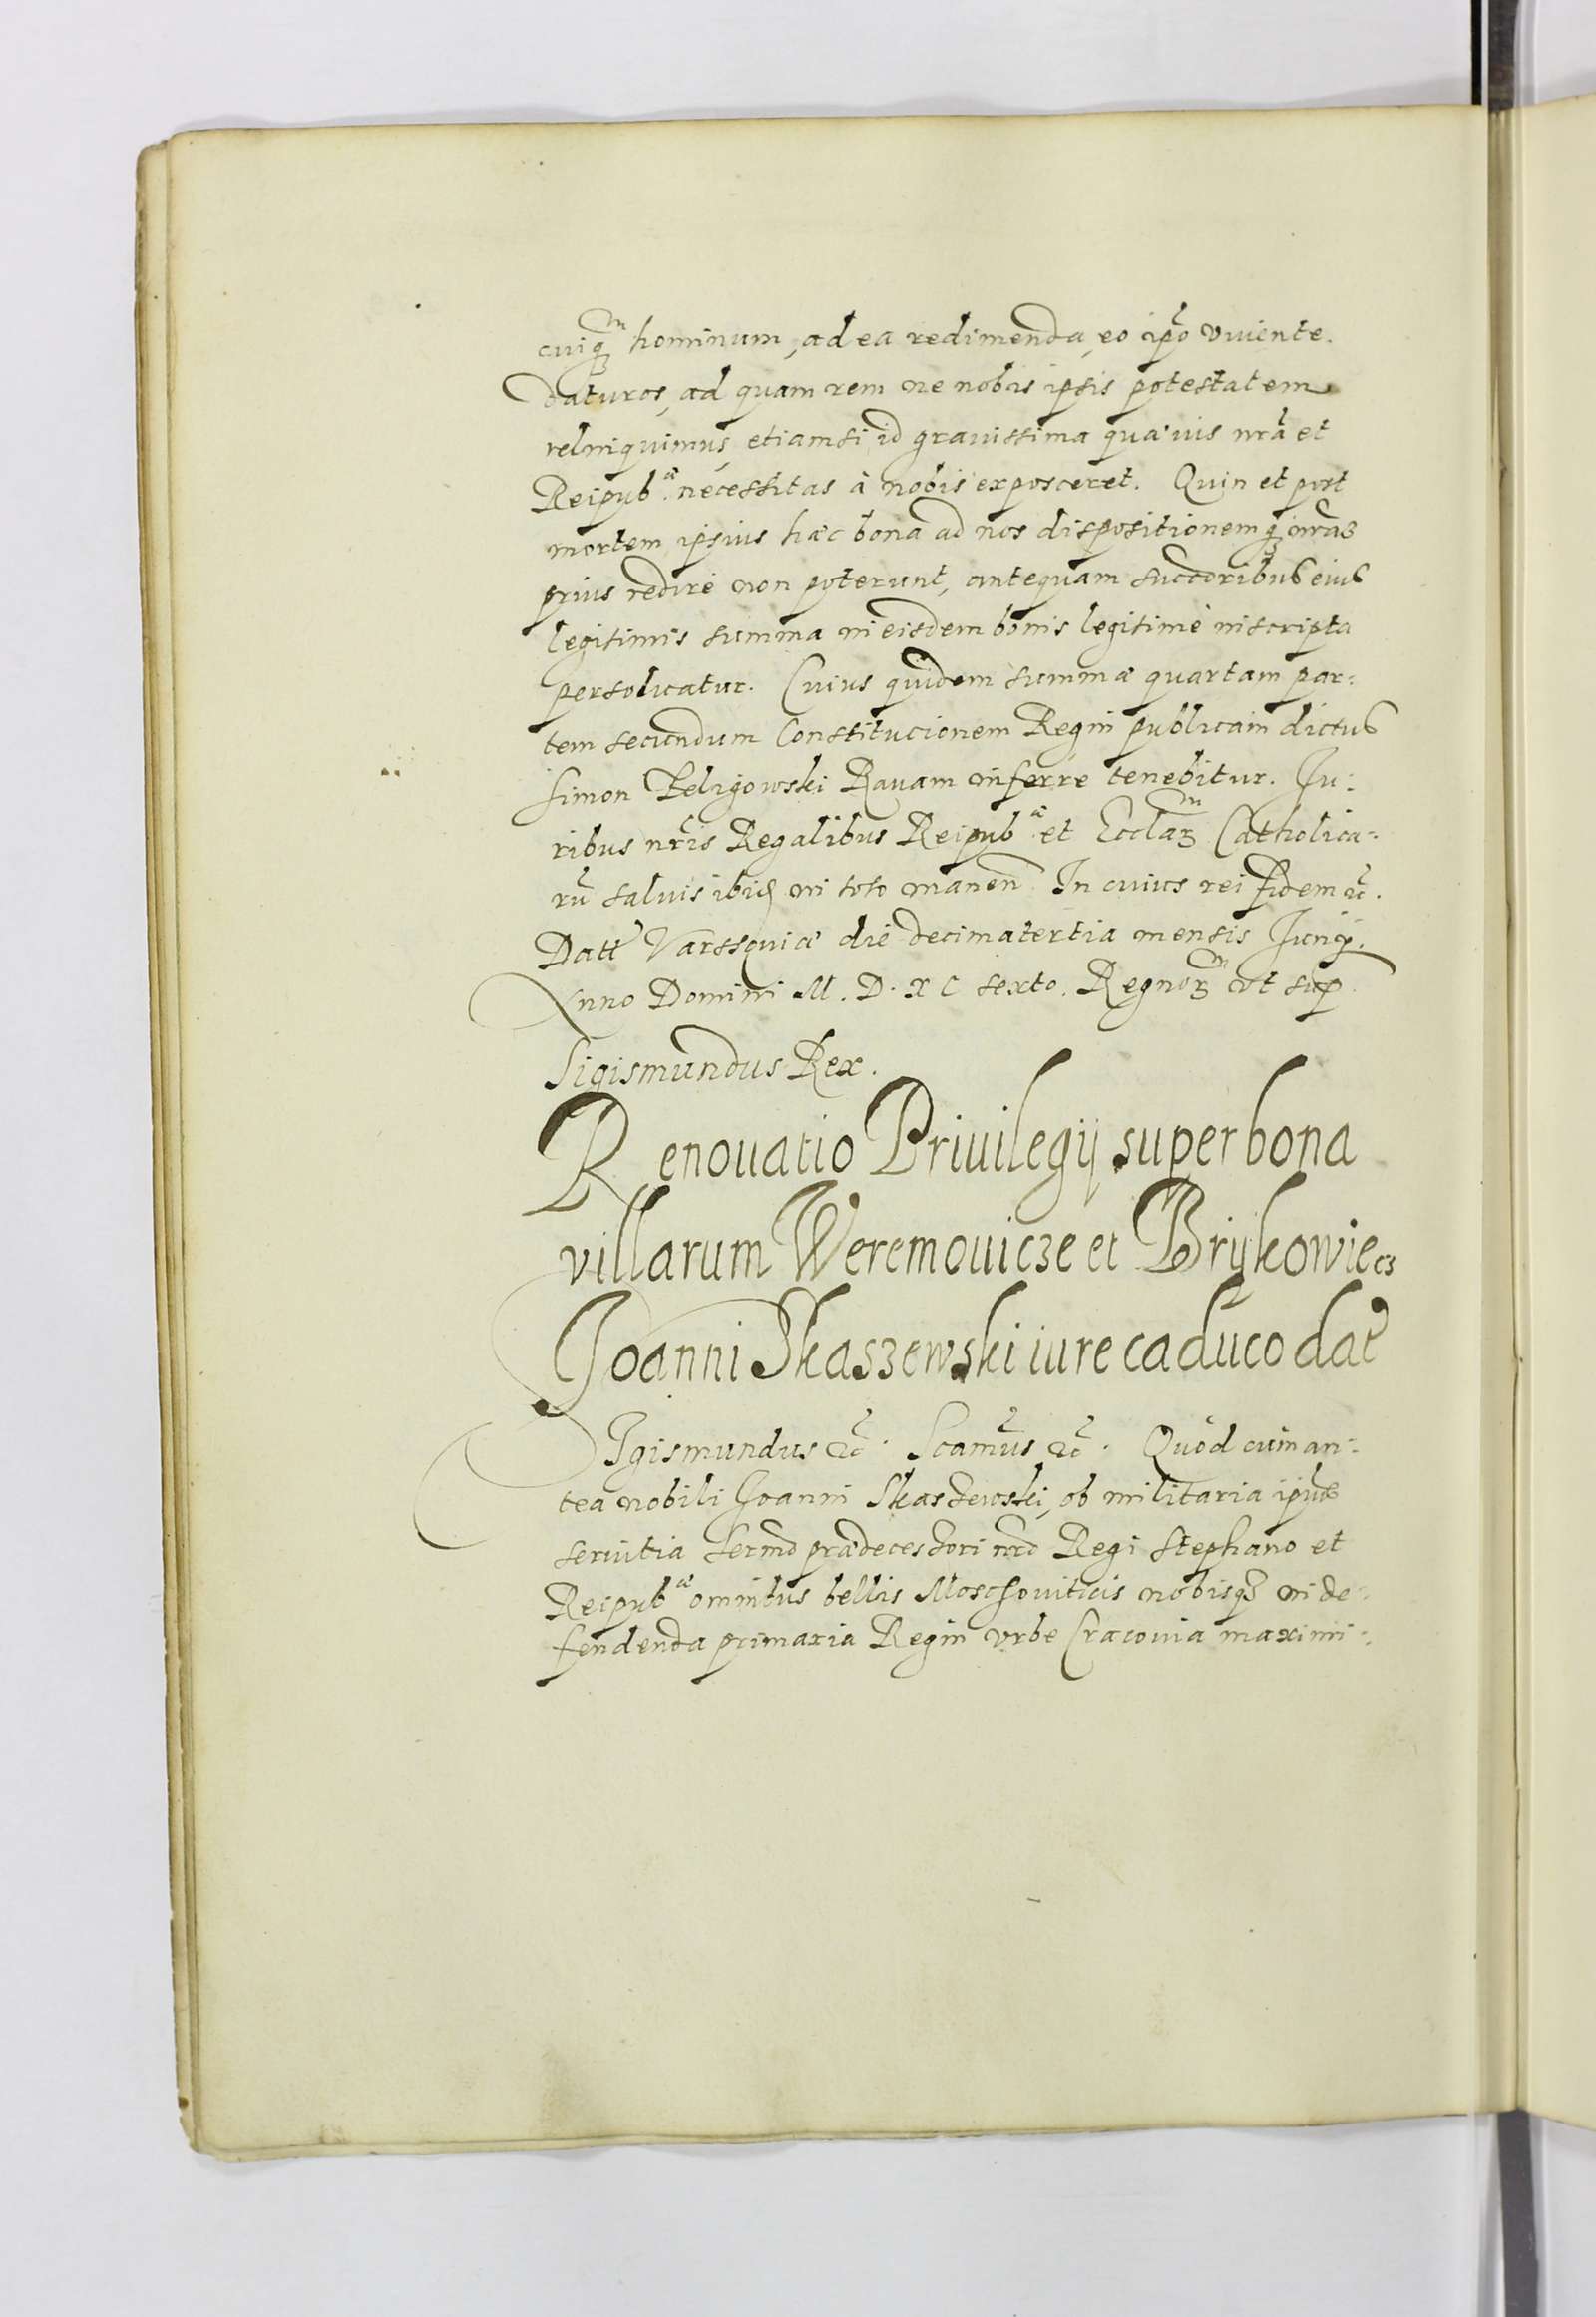 cuiq̃ hominum, ad ea redimenda, eo ip̃o viuente.
daturos, ad quam rem ne nobis ipsis potestatem
relinquimus, etiamsi id grauissima quæuis nrã et
Reipub.æ necessitas à nobis exposceret. Quin et post
mortem ipsius hæc bona ad nos dispositionemq; nrãm
prius redire non poterunt, antequam succoribus eius
legitimis summa in eisdem bonis legitimè inscripta
persoluatur. Cuius quidem summæ quartam par:
tem secundum Constitucionem Regni publicam dictus
Simon Zeligowski Rauam inferre tenebitur. Iu:
ribus nr̃is Regalibus Reipub.æ et Ecclar̃ Catholica:
rũ saluis ibid in toto manen̄ In cuius rei fidem ꝛc̃.
Datt Varssouiæ die decimatertia mensis Iunij.
Anno Domini M. D. XC sexto. Regnor̃ vt sup
Sigismundus Rex.
Renouatio Priuilegij super bona
villarum Weremouicze et Brykowiecz
Joanni Skaszewski iure caduco dat̃
SIgismundus ꝛc̃. Scam̃us ꝛc̃. Quòd cum an:
tea nobili Joanni Skaszewski, ob militaria ip̃ius
seruitia Sermo prædecessori nrõ Regi Stephano et
Reipub.æ omnibus bellis Moschouiticis nobisq; in de:
fendenda primaria Regni vrbe Cracouia maximi: